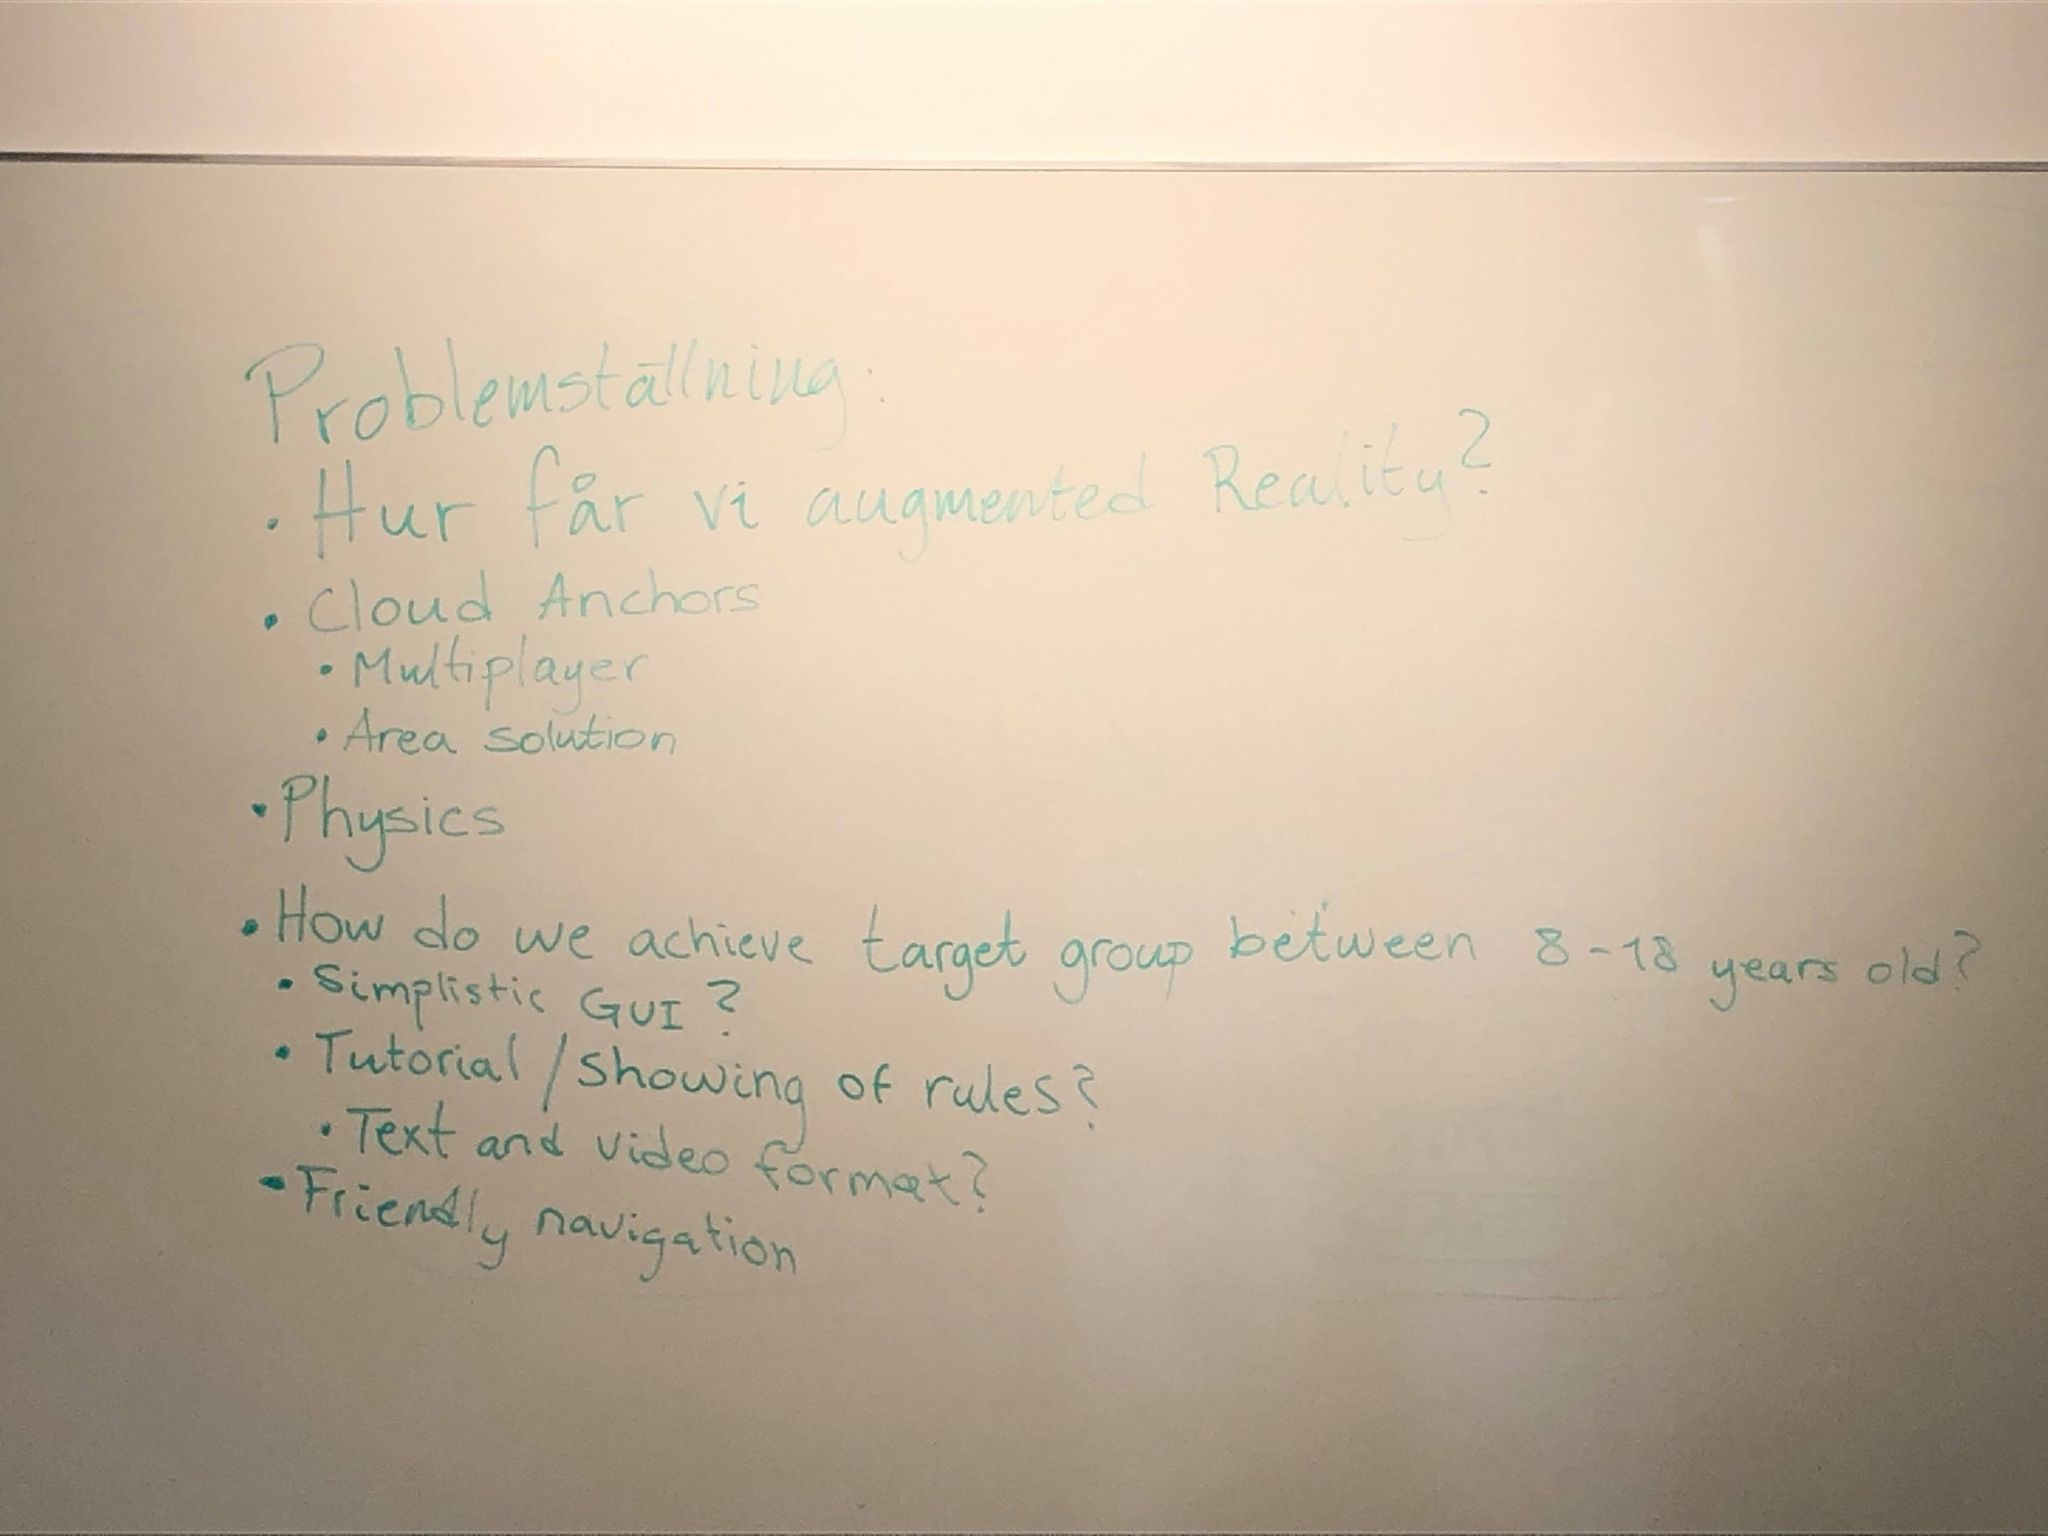 Problemställning:
• Hur får vi augmented Reality?
• Cloud Anchors
• Multiplayer
• Area solution
• Physics
• How do we achieve target group between 8-18 years old?
• Simplistic GUI?
• Tutorial / showing of rules?
• Text and video format?
• Friendly navigation